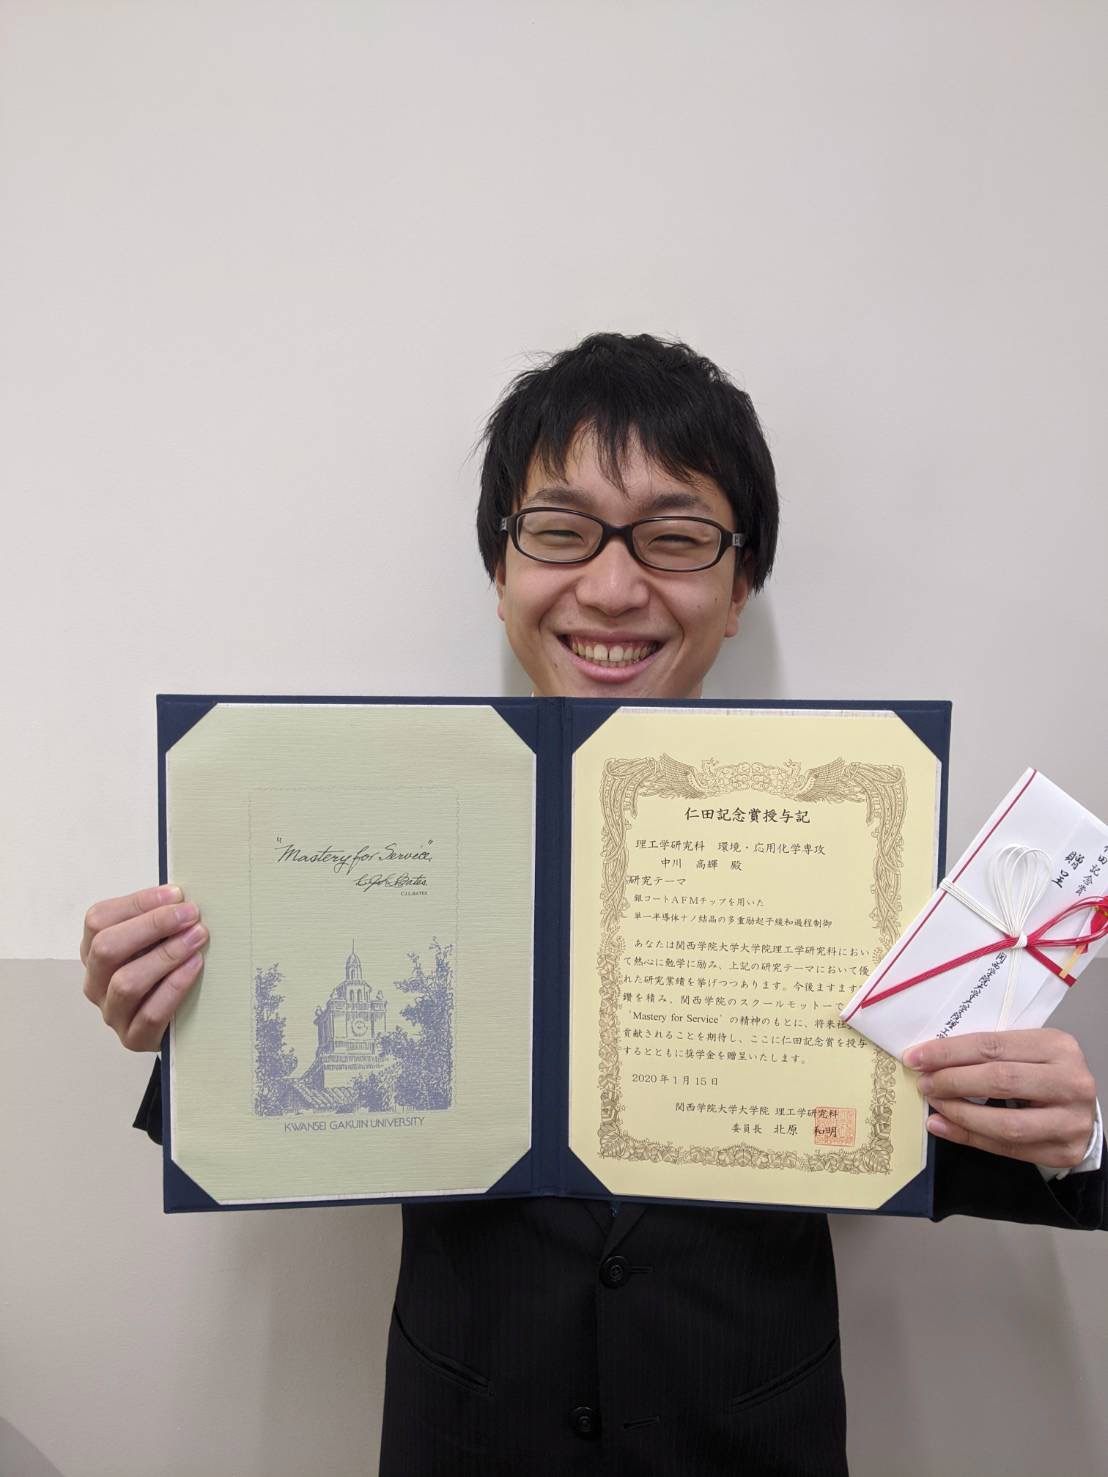 "Mastery for Service"
C.J.L. Bates
C.J.L.BATES
KWANSEI GAKUIN UNIVERSITY
仁田記念賞授与記
理工学研究科 環境・応用化学専攻
中川 高輝 殿
研究テーマ
銀コートAFMチップを用いた
単一半導体ナノ結晶の多重励起子緩和過程制御
あなたは関西学院大学大学院理工学研究科におい
て熱心に勉学に励み、上記の研究テーマにおいて優
れた研究業績を挙げつつあります。今後ますます
鑽を積み、関西学院のスクールモットーで
'Mastery for Service' の精神のもとに、将来社
貢献されることを期待し、ここに仁田記念賞を授与
するとともに奨学金を贈呈いたします。
2020年1月15日
関西学院大学大学院 理工学研究科
委員長 北原 和明
田記念賞
贈呈
関西学院大学大学院理工学